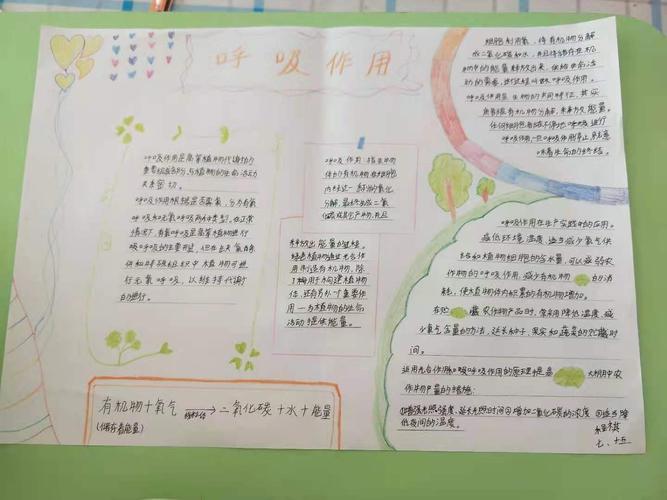 呼吸作用
细胞利用氧,将有机物分解
成二氧化碳和水,并且将储存在有机
物中的能量释放出来,供给生命活
动的需要,这个过程叫做呼吸作用。
呼吸作用是生物的共同特征,其实
质都是有机物分解,来释放能量。
任何细胞都在不停地呼吸进行
呼吸作用一旦呼吸作用停止,就意
味着生命的终结。
呼吸作用是高等植物代谢的
重要组成部分,与植物的生命活动
关系密切。
呼吸作用根据是否需氧,分为有氧
呼吸和无氧呼吸两种类型。在正常
情况下,有氧呼吸是高等植物进行
呼吸的主要形式,但在缺氧
条件和
组织中植物可进
行无氧呼吸,以维持代谢
的进行。
呼吸作用指生物
体内的有机物在细胞
内经过一系列的氧化
分解,最终生成二氧
化碳或其它产物,并且
释放出能量的过程。
绿色植物通过光合作
用制造有机物,除
了有用于构建植物
体,还有另外一个重要作
用一为植物的生命
活动提供能量。
呼吸作用在生产实践中的应用。
减低环境温度,适当减少氧气供
给和植物细胞的含水量,可以减弱农
作物的呼吸作用,减少有机物的消
耗,使植物体内积累的有机物增加。
在贮藏农作物产品时,常采用降低温度,减
少氧气含量的方法,延长种子,果实和蔬菜的贮藏时
间。
运用光合作用和呼吸作用的原理
大棚中农
作物产量的措施:
①增强光照强度,延长光照时间②增加二氧化碳的浓度③适当降
低夜间的温度。
有机物+氧气 → 二氧化碳+水+能量
(储存着能量)
七、十五